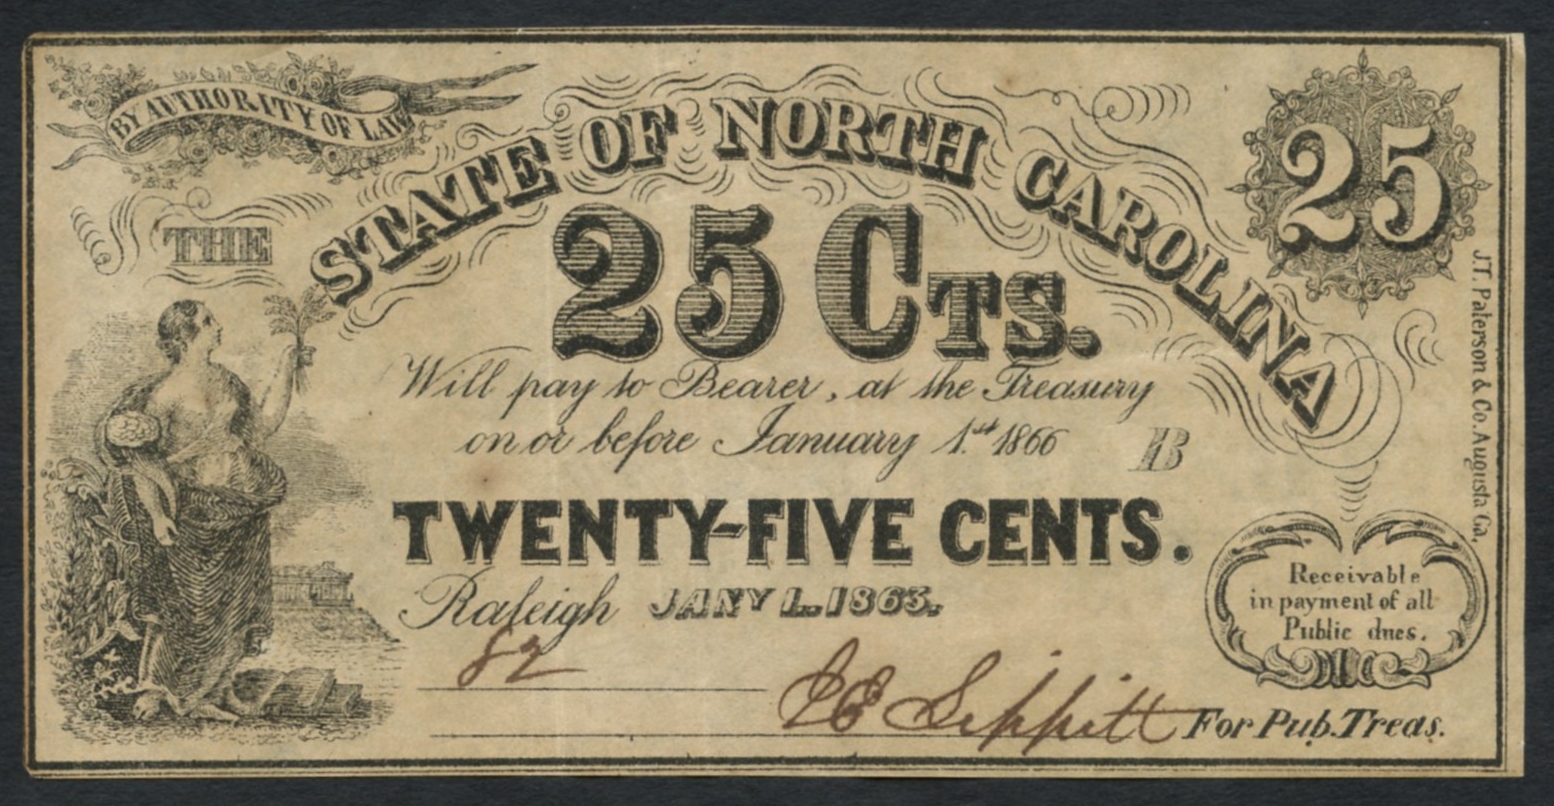 BY AUTHORITY OF LAW
THE
STATE OF NORTH CAROLINA
25
25 CTS.
Will pay to Bearer, at the Treasury
on or before January 1st 1866
B
TWENTY-FIVE CENTS.
Raleigh JANY 1. 1863.
82
J E Lippitt For Pub. Treas.
Receivable
in payment of all
Public dues.
J.T. Paterson & Co. Augusta Ga.